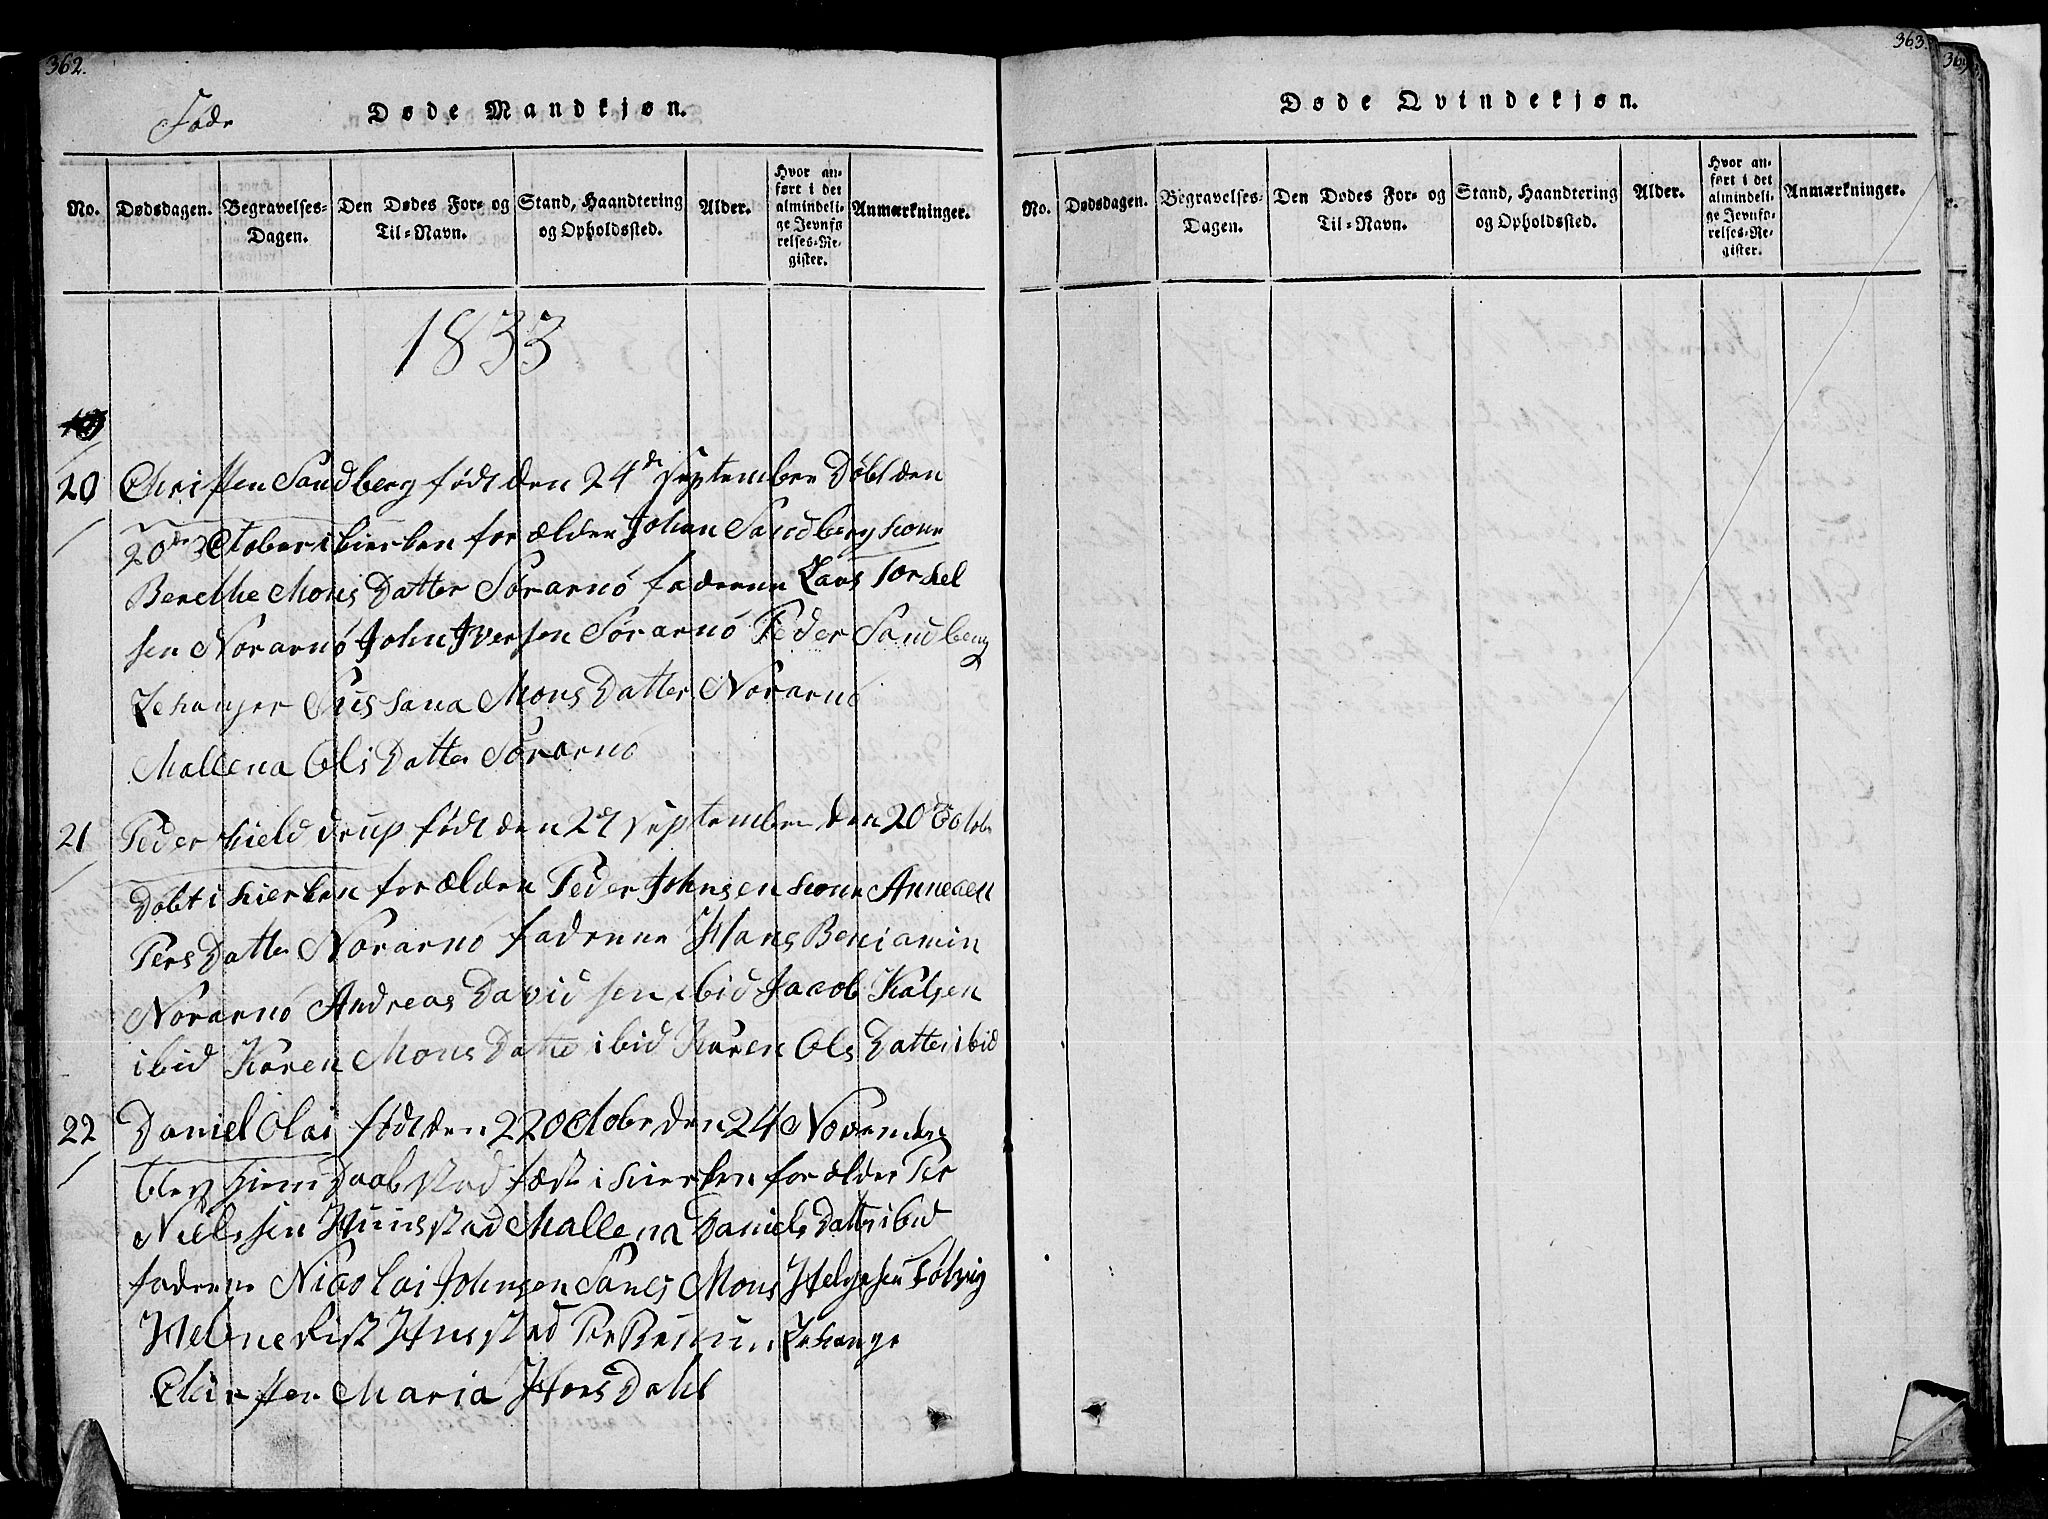 362.
Føde
Døde Mandkjøn.
No.
Dødsdagen.
Begravelses-
Dagen.
Den Dødes For- og
Til-Navn.
Stand, Haandtering
og Opholdssted.
Alder.
Hvor an-
ført i det
almindeli-
ge Jevnfø
relses-Re-
gister.
Anmærkninger.
1833
20 Christen Sandberg født den 24de September Døbt den
20de October i kierken forælder Johan Sandberg kone
Berethe Mons Datter Sørarnø faderne Lars Torkel
sen Norarnø John Iversen Sørarnø Peder Sandberg
Sussana Mons Datter Norarnø
Mallena Ols Datter Sørarnø
21 Peder hield drup født den 27 September den 20 Octobr
Døbt i kierken forælder Peder Johnsen kone Anne
Pers Datter Norarnø faderne Hans Beniamin
Norarnø Andreas David sen ibid Jacob
ibid Karen Mons Datter ibid Karen Ols Datter ibid
22 Daniel Olai født den 22 Octobr den 24 Novembr
blev hiemDaab stadfæst i kierken forælder Per
Nielssen Hunstad Mallena Daniels Datter ibid
faderne Nicolai Johnsen Mons Helgesen
Hunstad Per
Maria
363.
Døde Qvindekjøn.
No.
Dødsdagen.
Begravelses-
Dagen.
Den Dødes For- og
Til-Navn.
Stand, Haandtering
og Opholdssted.
Alder.
Hvor an-
ført i det
almindeli-
ge Jevnfø-
relses-Re-
gister.
Anmærkninger.